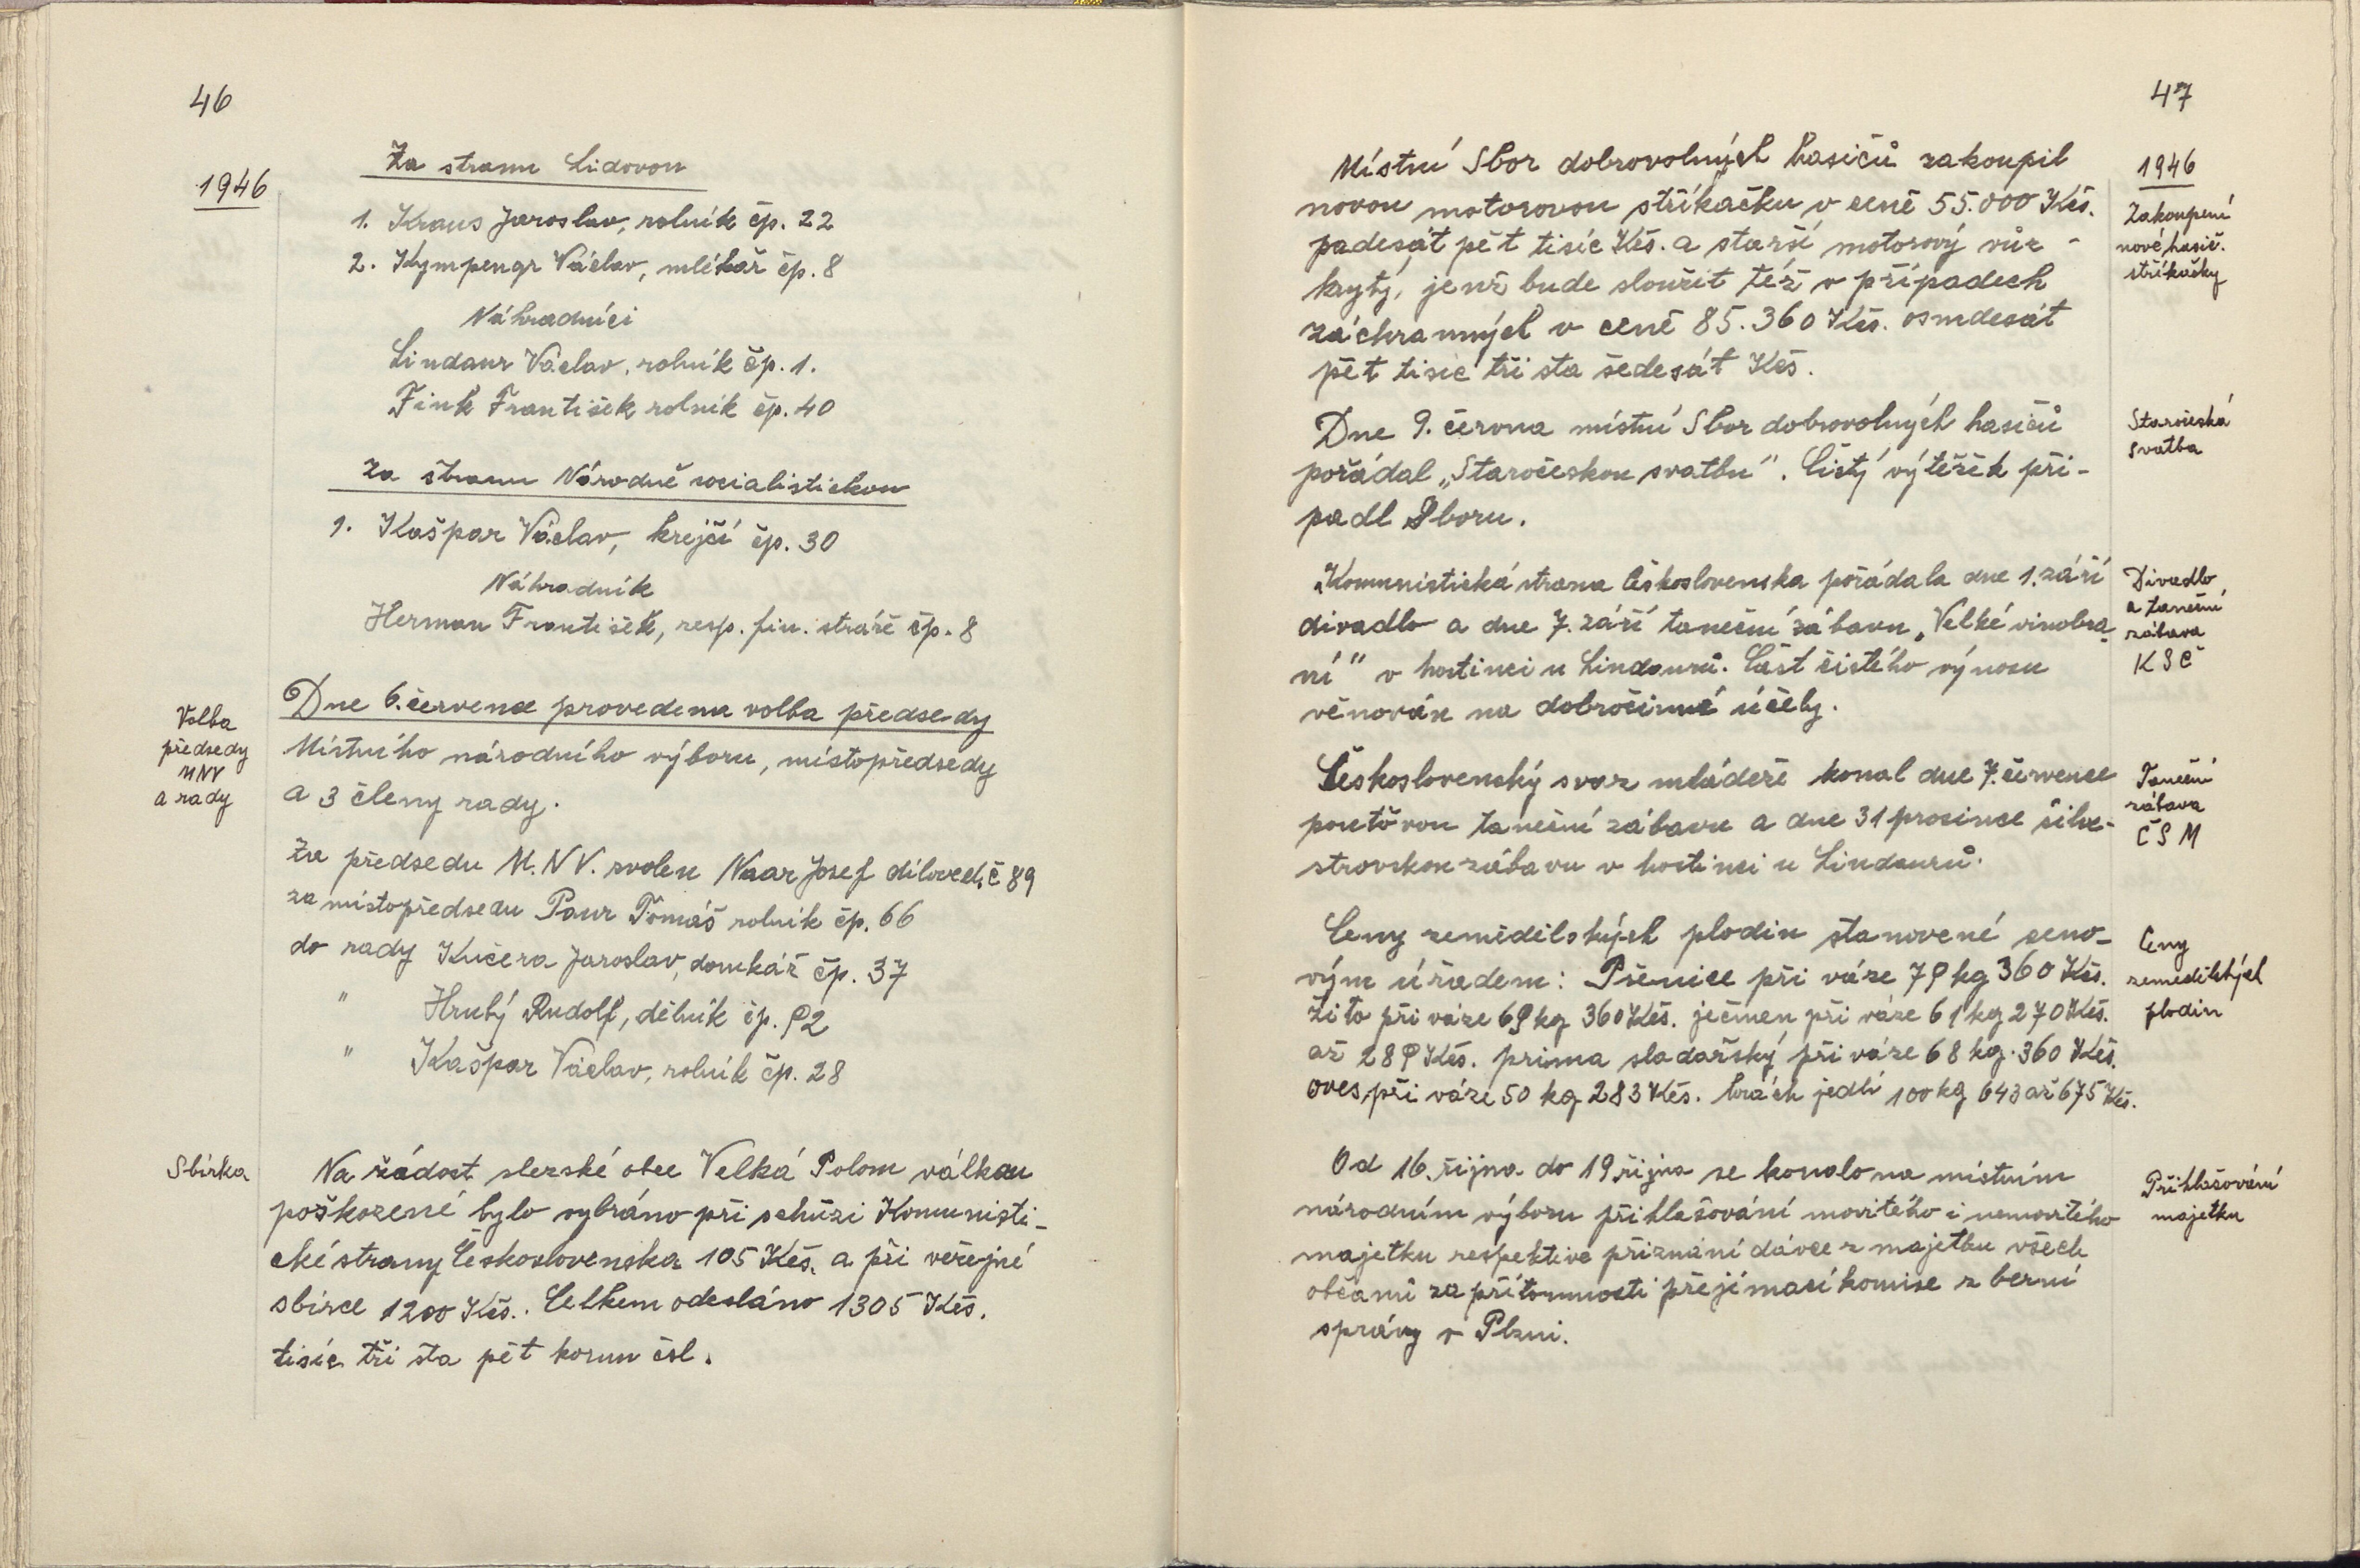 46
1946
Za stranu Lidovou
1. Kraus Jaroslav, rolník čp. 22
2. Kympengr Václav, mlékař čp. 8
Náhradníci
Lindaur Václav, rolník čp. 1.
Fink František rolník čp. 40
Za stranu Národně socialistickou
1. Kašpar Václav, krejčí čp. 30
Náhradník
Herman František, resp. fin. stráže čp. 8
Volba
předsedy
MNV
a rady
Dne 6. července provedena volba předsedy
Místního národního výboru, místopředsedy
a 3 členy rady.
Za předsedu M.N V. zvolen Naar Josef díloved. č 89
za místopředsedu Paur Tomáš rolník čp. 66
do rady Kučera Jaroslav, domkář čp. 37
" Hrubý Rudolf, dělník čp. 92
" Kašpar Václav, rolník čp. 28
Sbírka
Na žádost slezské obce Velká Polom válkou
poškozené bylo vybráno při schůzi Komunisti-
cké strany Československa 105 Kčs. a při veřejné
sbírce 1200 Kčs.. Celkem odesláno 1305 Kčs.
tisíc tři sta pět korun čsl.
47
1946
Zakoupení
nové hasič.
stříkačky
Místní Sbor dobrovolných hasičů zakoupil
novou motorovou stříkačku v ceně 55.000 Kčs.
padesát pět tisíc Kčs. a starší motorový vůz -
krytý, jenž bude sloužit též v případech
záchranných v ceně 85.360 Kčs. osmdesát
pět tisíc tři sta šedesát Kčs.
Staročeská
svatba
Dne 9. června místní Sbor dobrovolných hasičů
pořádal „Staročeskou svatbu". Čistý výtěžek při-
padl Sboru.
Divadlo
a taneční
zábava
KSČ
Komunistická strana Československa pořádala dne 1. září
divadlo a dne 7. září taneční zábavu „Velké vinobra-
ní" v hostinci u Lindaurů. Část čistého výnosu
věnován na dobročinné účely.
Taneční
zábava
ČSM
Československý svaz mládeže konal dne 7. července
pouťovou taneční zábavu a dne 31 prosince silve-
strovskou zábavu v hostinci u Lindaurů.
Ceny
zemědělských
plodin
Ceny zemědělských plodin stanovené ceno-
vým úřadem: Pšenice při váze 79 kg 360 Kčs.
žito při váze 69 kg 360 Kčs. ječmen při váze 61 kg 270 Kčs.
až 289 Kčs. prima sladařský při váze 68 kg. 360 Kčs.
oves při váze 50 kg 283 Kčs. hrách jedlí 100 kg 643 až 675 Kčs.
Přihlašování
majetku
Od 16. října do 19 října se konalo na místním
národním výboru přihlašování movitého i nemovitého
majetku respektive přiznání dávce z majetku všech
občanů za přítomnosti přejímací komise z berní
správy v Plzni.